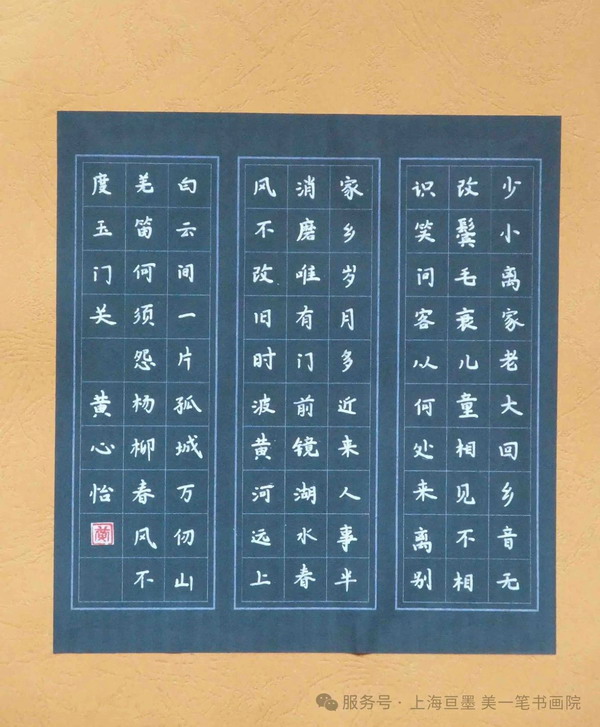 少小离家老大回乡音无
改鬓毛衰儿童相见不相
识笑问客从何处来离别
家乡岁月多近来人事半
消磨唯有门前镜湖水春
风不改旧时波黄河远上
白云间一片孤城万仞山
羌笛何须怨杨柳春风不
度玉门关 黄心怡
服务号·上海亘墨 美一笔书画院